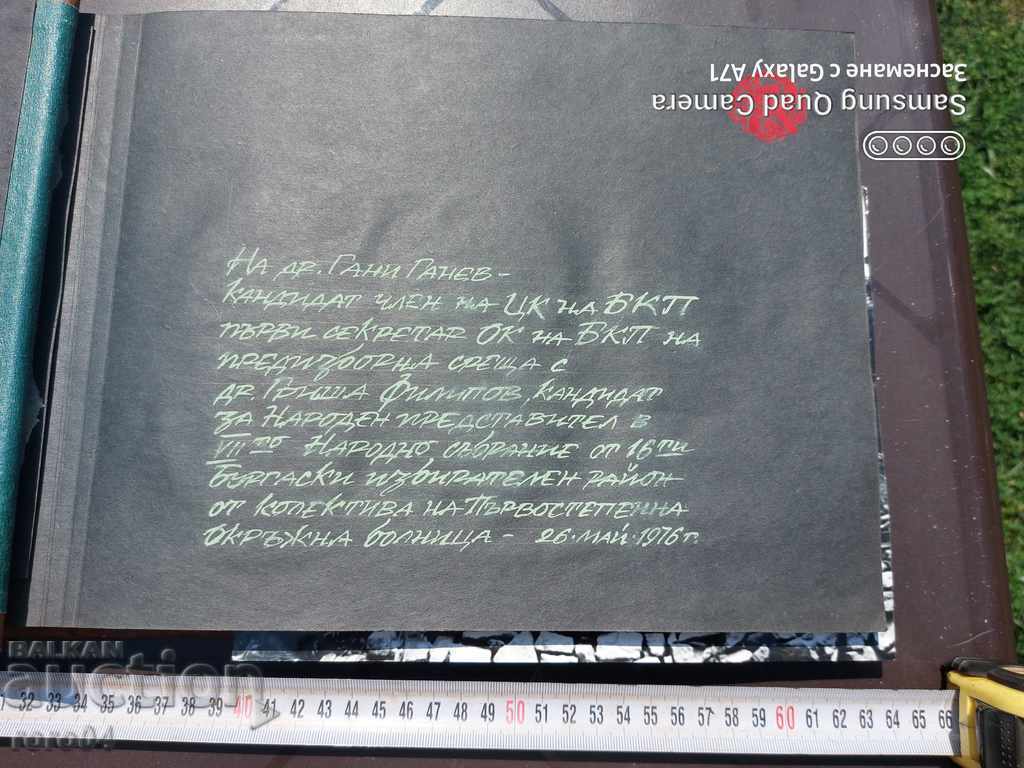 Заснемане с Galaxy A71
Samsung Quad Camera
На др. Гани Ганев –
кандидат член на ЦК на БКП
първи секретар ОК на БКП на
предизборна среща с
др. Гриша Филипов, кандидат
за Народен представител в
VII то Народно събрание от 16ти
Бургаски избирателен район
от колектива на Първостепенна
окръжна болница – 26. май. 1976 г.
BALKAN
auction
roro04
32 33 34 35 36 37 38 39 40 41 42 43 44 45 46 47 48 49 50 51 52 53 54 55 56 57 58 59 60 61 62 63 64 65 66